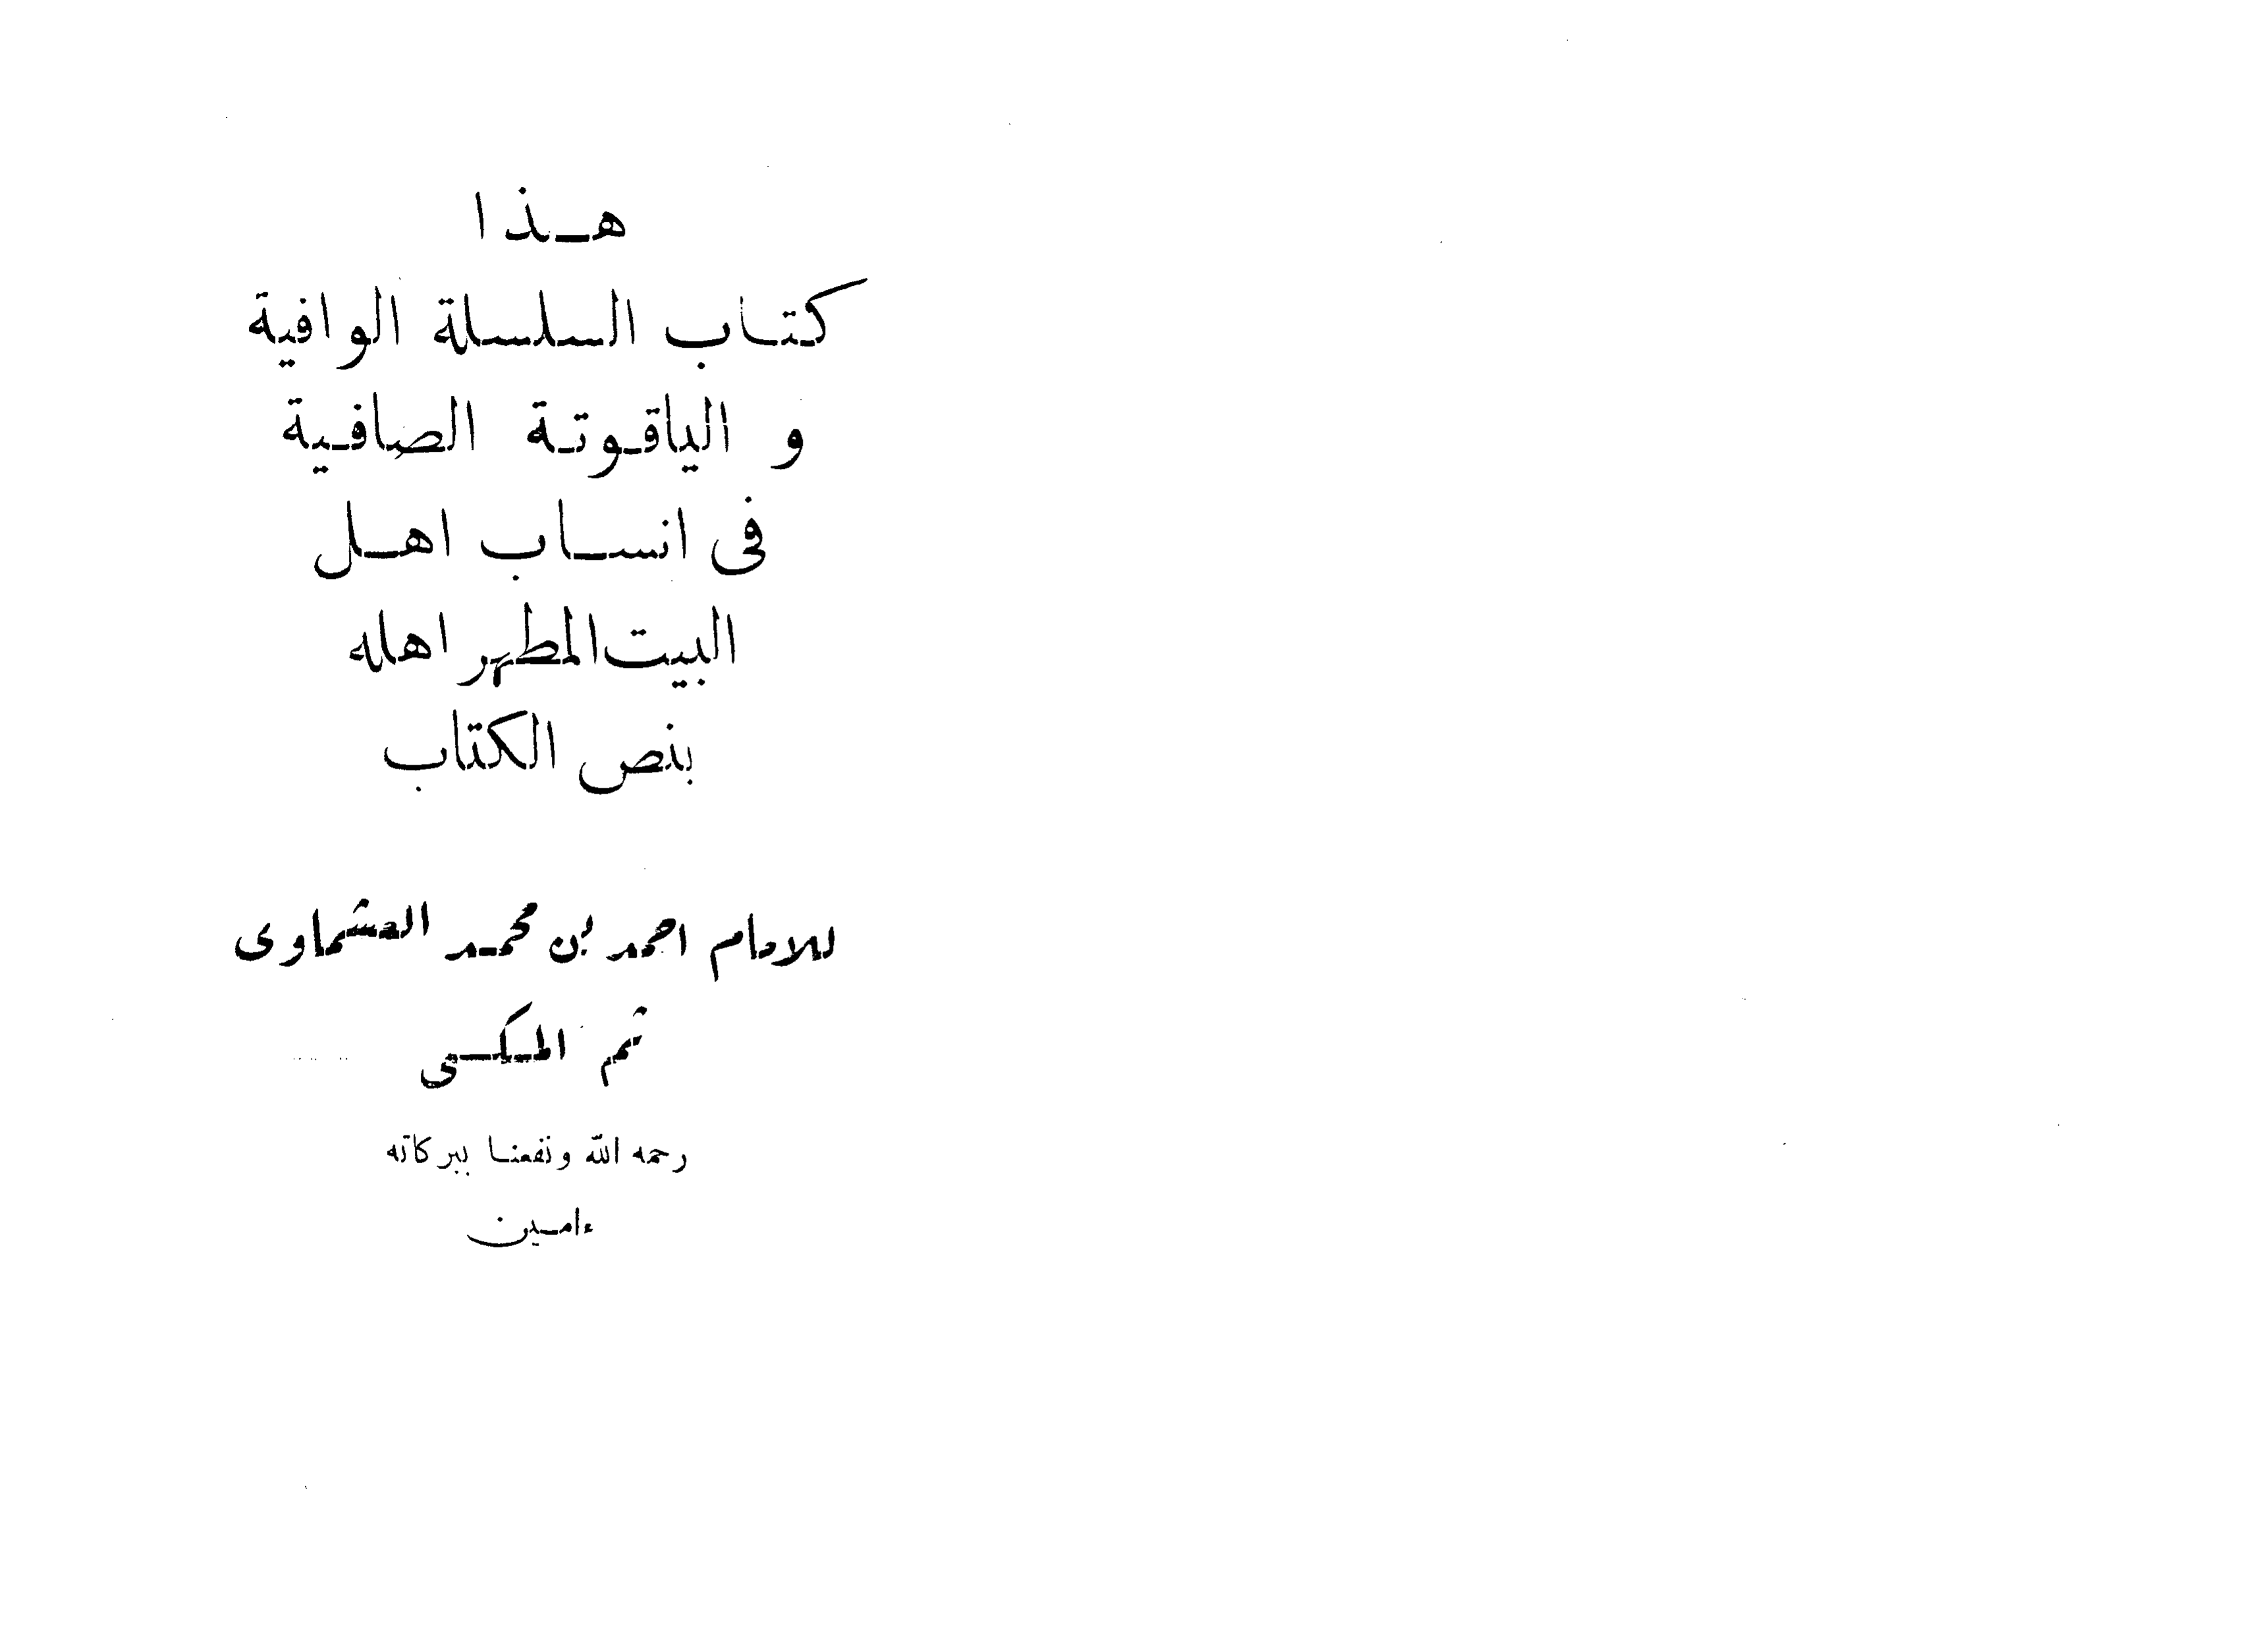 هذا
كتاب السلسلة الوافية
و الياقوتة الصافية
فى انساب اهل
البيت المطهر اهله
بنص الكتاب
للامام احمد بن محمد العشماوى
ثم المكى
رحمه الله ونفعنا ببركاته
ءامين